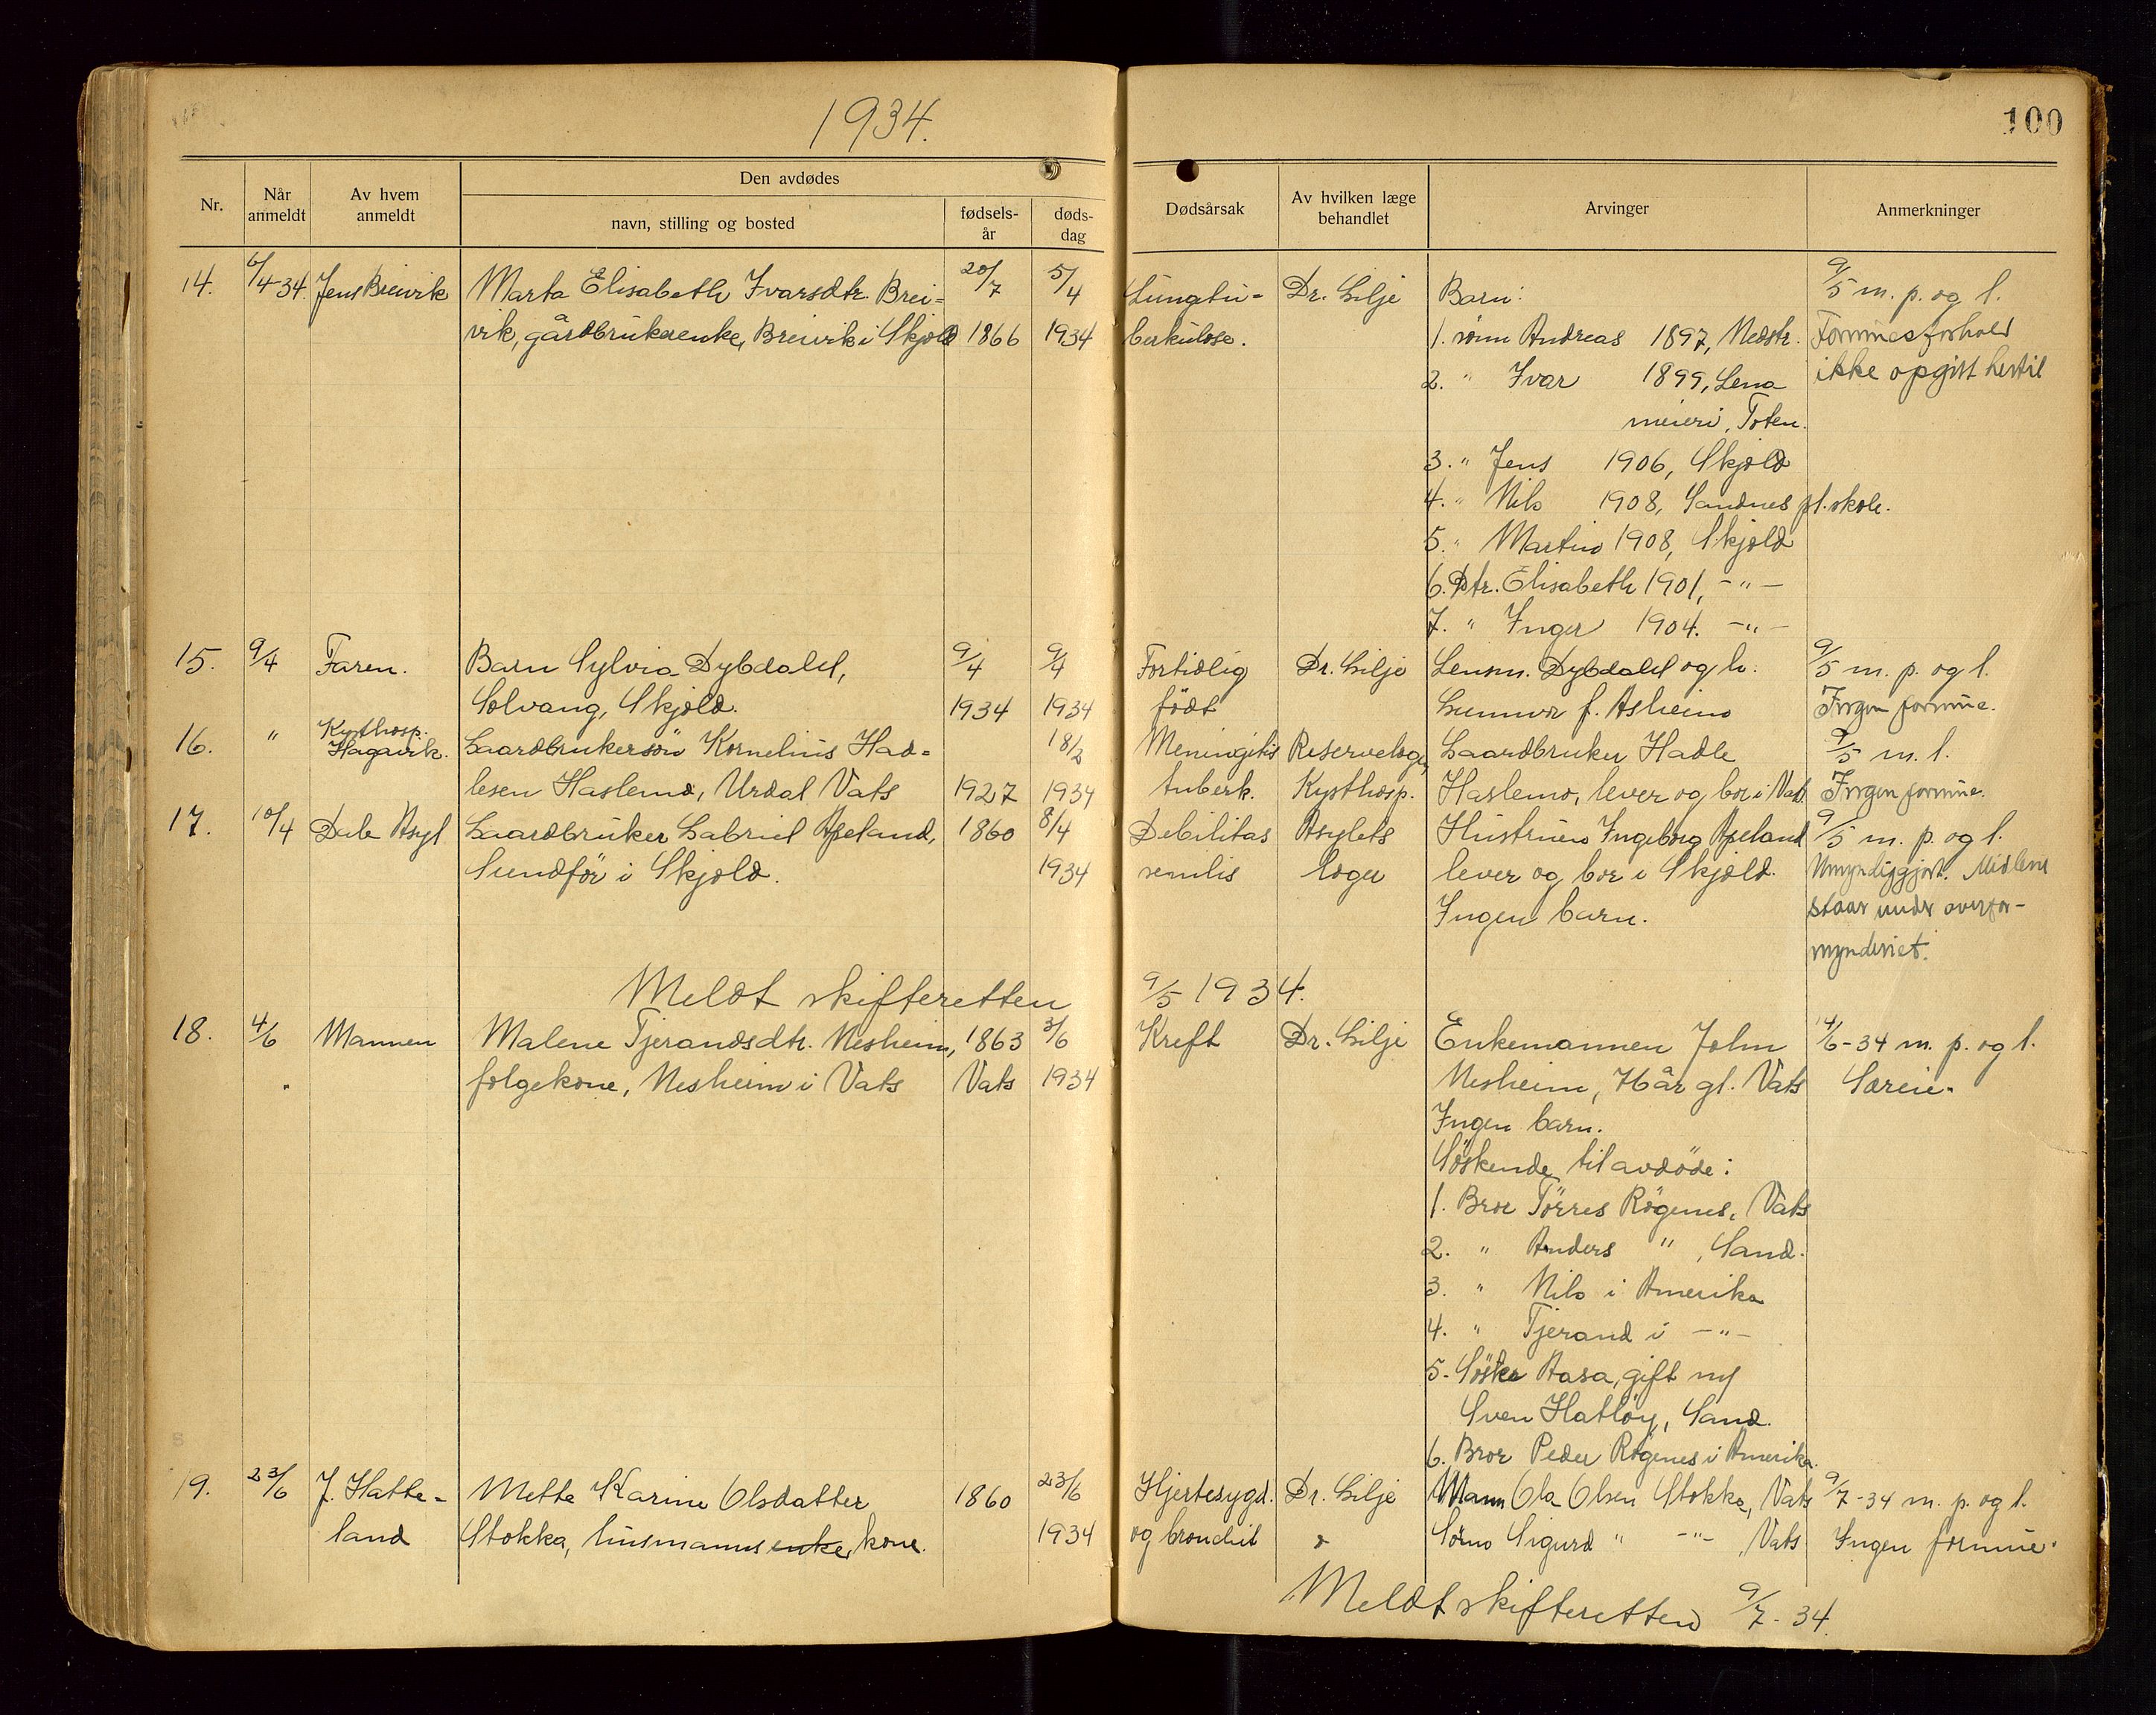 1934.
100
Nr.
Når anmeldt
Av hvem anmeldt
Den avdødes
navn, stilling og bosted
fødsels-år
døds-dag
Dødsårsak
Av hvilken læge behandlet
Arvinger
Anmerkninger
14. 6/4-34. Jens Breivik Marta Elisabeth Ivarsdtr. Brei- 20/7 5/4 Lungetu- Dr. Lilje Barn: 9/5 m. p. og l.
vik, gårdbrukerenke, Breivik i Skjold 1866 1934 berkulose. 1. sönn Andreas 1897, Nedstr. Formuesforhold
2. " Ivar 1899, Lena ikke opgitt hertil
meieri, Toten.
3. " Jens 1906, Skjold
4. " Nils 1908, Sandnes pl. skole.
5. " Martin 1908, Skjold
6. Dtr. Elisabeth 1901, -"-
7. " Inger 1904. -"-
15. 9/4 Faren. Barn Sylvia Dybdahl, 9/4 9/4 Fortidlig Dr. Lilje Lensm. Dybdahl og h. 9/5 m. p. og l.
Solvang, Skjold. 1934 1934 födt Gunnvor f. Asheim Ingen formue.
16. " Kysthosp. Hagavik. Gaardbrukersön Kornelius Had- 18/2 Meningitis Reservelæge, Gaardbruker Hadle 9/5 m. l.
lesen Haslemo, Urdal Vats 1927 1934 tuberk. Kysthosp. Haslemo, lever og bor i Vats. Ingen formue.
17. 10/4 Dale Asyl Gaardbruker Gabriel Apeland, 1860 8/4 Debilitas Asylets Hustruen Ingeborg Apeland 9/5 m. p. og l.
Sundför i Skjold. 1934 senilis læger lever og bor i Skjold. Umyndiggjort. Midlene
Ingen barn. staar under overfor-
mynderiet.
Meldt skifteretten 9/5 1934.
18. 4/6 Mannen Malene Tjerandsdtr. Nesheim, 1863 3/6 Kreft Dr. Lilje Enkemannen John 14/6-34 m. p. og l.
folgekone, Nesheim i Vats Vats 1934 Nesheim, 76 år gl. Vats Særeie.
Ingen barn.
Söskende til avdöde:
1. Bror Törres Rögenes, Vats
2. " Anders " , Sand.
3. " Nils i Amerika
4. " Tjerand i -"-
5. Söster Aasa, gift m/
Sven Hatlöy, Sand.
6. Bror Peder Rögenes i Amerika.
19. 23/6 J. Hatte- Mette Karine Olsdatter 1860 23/6 Hjertesygd. Dr. Lilje Mann Ola Olsen Stokka, Vats 9/7-34 m. p. og l.
land Stokka, husmanns enke, kone. 1934 og bronchit Sönn Sigurd " -"- , Vats Ingen formue.
Meldt skifteretten 9/7-34.